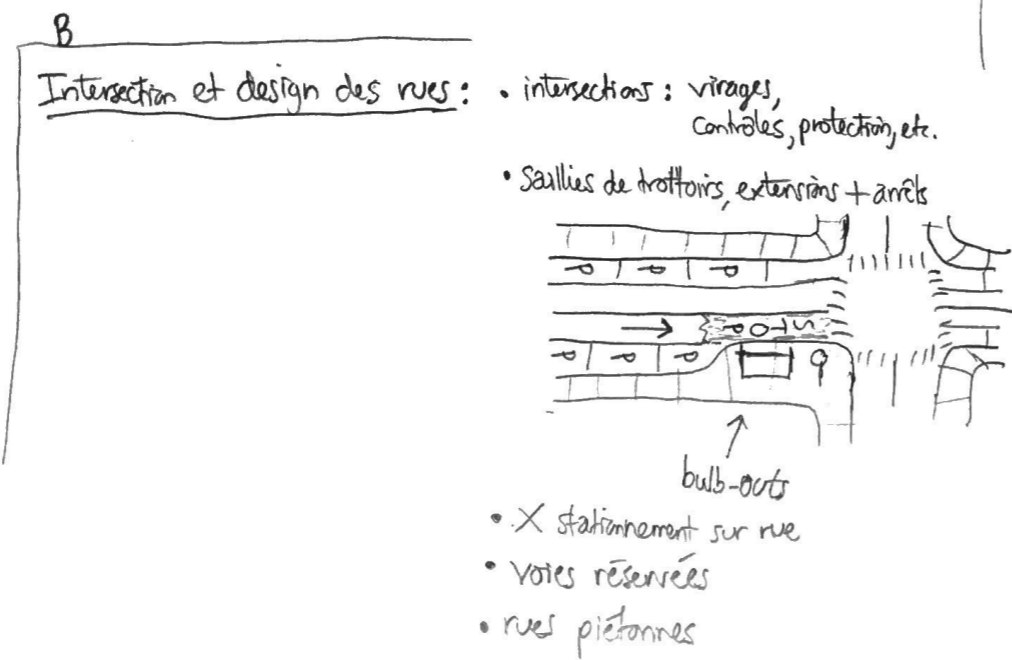 B
Intersection et design des rues :
• intersections : virages,
contrôles, protection, etc.
• Saillies de trottoirs, extensions + arrêts
P P P
STOP
P P P
bulb-outs
• X stationnement sur rue
• voies réservées
• rues piétonnes